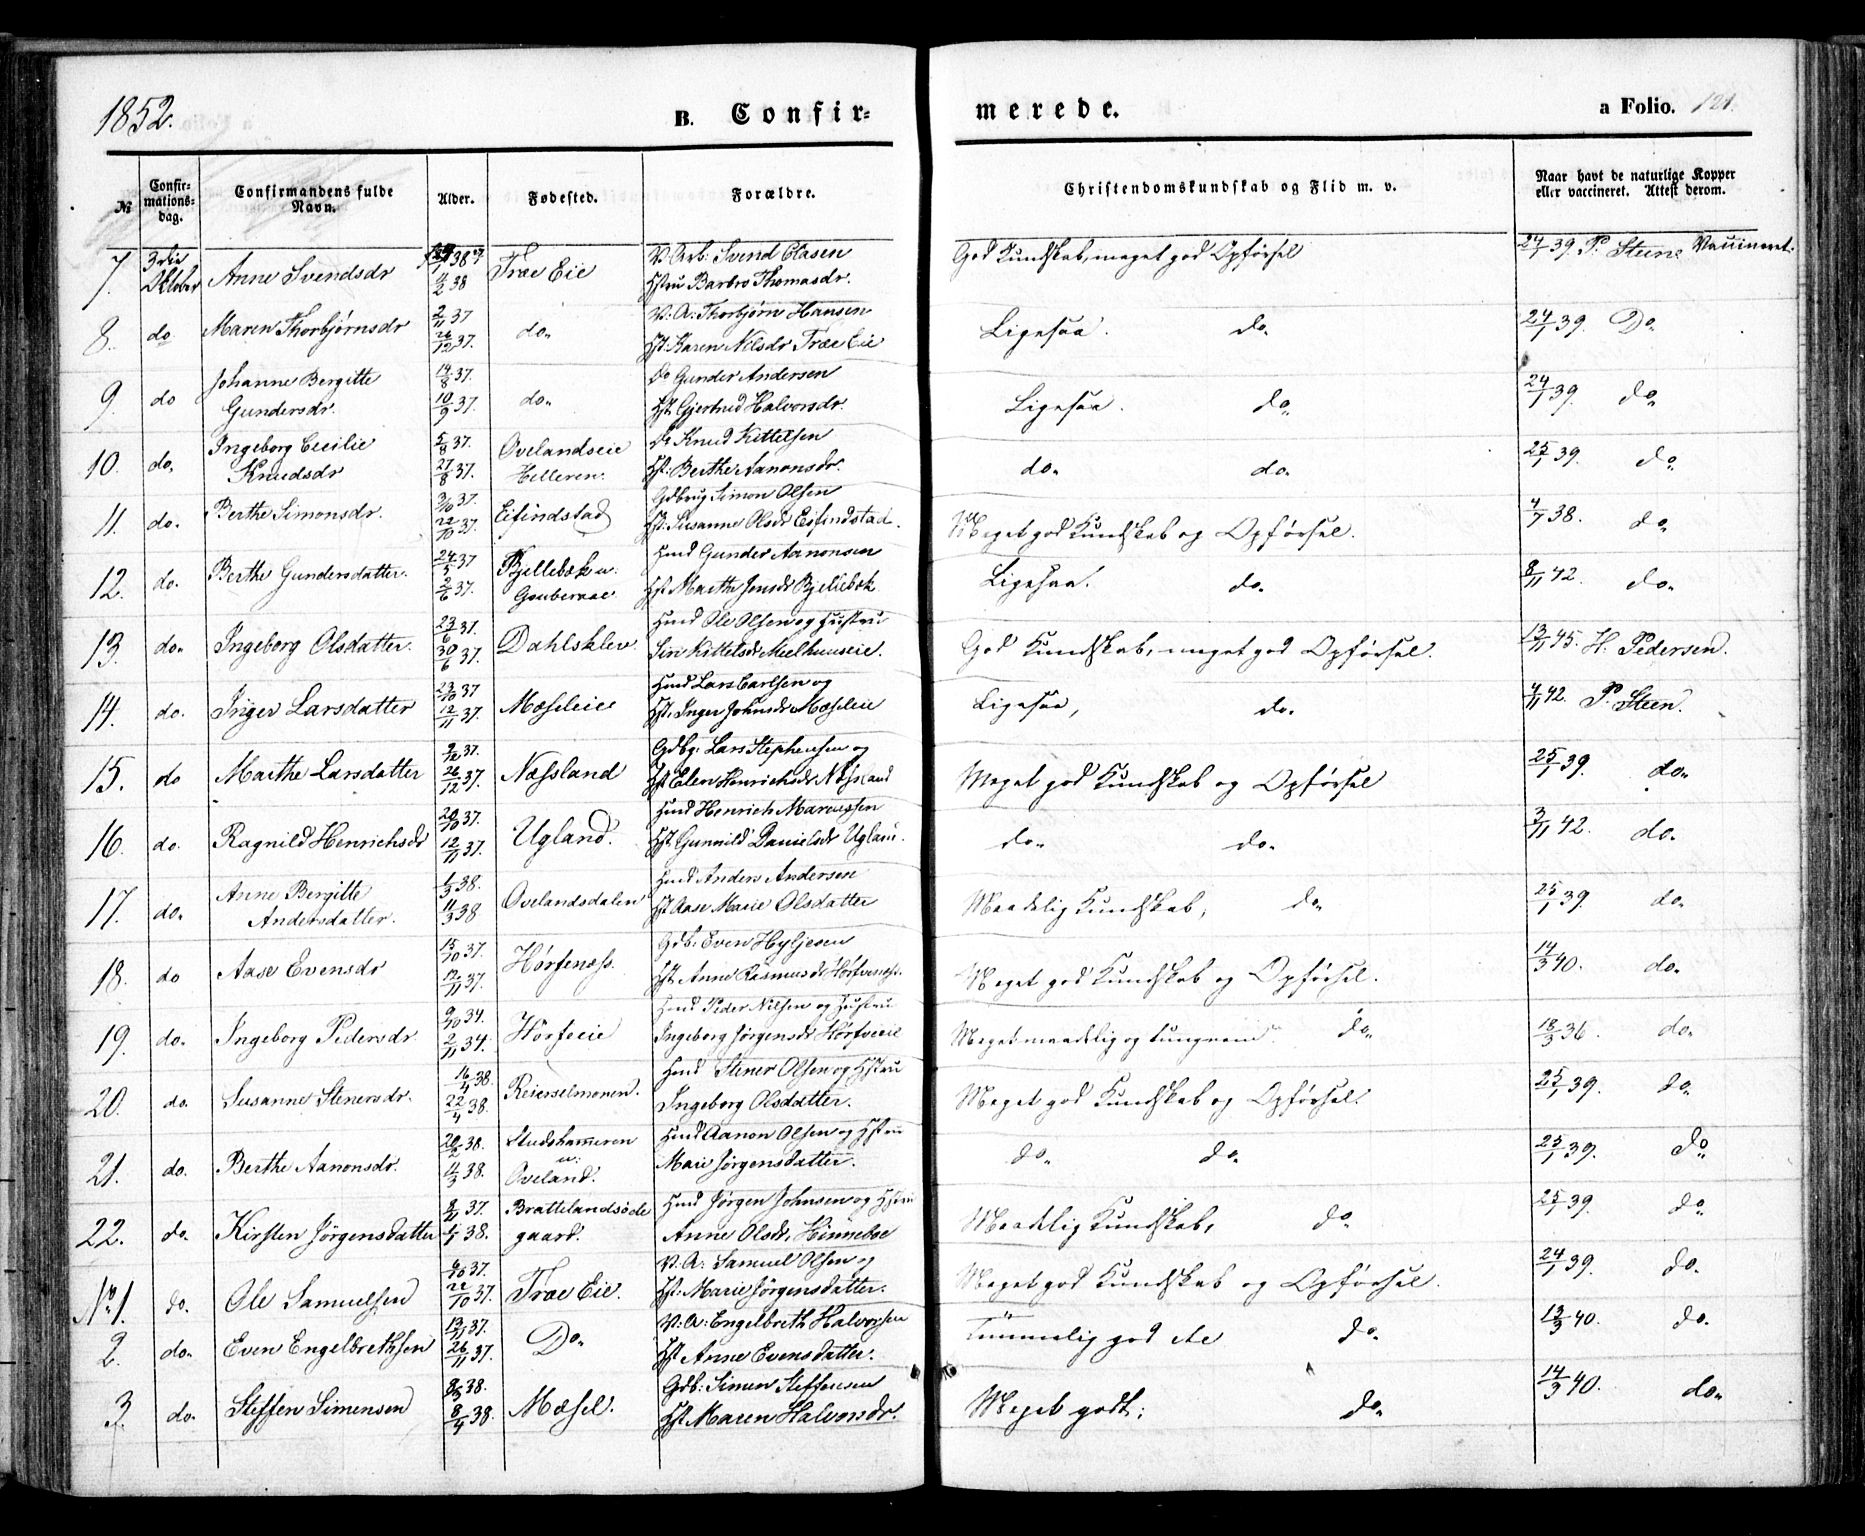 1852.
B. Confir-
merede.
a Folio. 121.
№
Confirmationsdag.
Confirmandens fulde Navn.
Alder.
Fødested.
Forældre.
Christendomskundskab og Flid m. v.
Naar havt de naturlige Kopper eller vaccineret. Attest derom.
7. 3die Oktober Anne Svendsdr 4/2 38 Træ Eie V. Arb: Svend Olasen Hstru Barbro Thomasdr. God Kundskab, meget god Opførsel 24/1 39. P. Steen Vaccineret.
8. do Maren Thorbjørnsdr 2/11 37 26/12 37. do. V. A: Thorbjørn Hansen Hst: Karen Nilsdr Træ Eie Ligesaa. do. 24/1 39. Do
9. do Johanne Bergitte Gundersdr. 14/8 37. 10/9 37. do. Do Gunder Andersen Hst. Gjertrud Halvorsdr. Ligesaa. do. 24/1 39. do
10. do. Ingeborg Cecilie Knudsdr 5/8 37. 27/8 37. Ovelandseie Helleren. Do Knud Kittelsen Hst: Berthe Aanonsdr. do. do. 25/1 39. do
11. do. Berthe Simonsdr. 3/10 37. 22/10 37. Eifindstad Gdbrug Simon Olsen Hst: Susanne Olsdr Eifindstad. Meget god Kundskab og Opførsel. 4/7 38. do
12. do. Berthe Gundersdatter. 24/5 37 2/6 37. Bjellebæk u. Hmd Gunder Aanonsen Hst Marthe Jensdr Bjellebæk Ligesaa. do. 8/11 42. do.
13. do. Ingeborg Olsdatter. 23/6 37. 30/6 37. Dahlsklev Hmd Ole Olsen og Hustru Siri Kittelsdr Meelhuuseie. God Kundskab, meget god Opførsel. 13/11 45. H. Pedersen.
14. do. Inger Larsdatter 23/10 37 12/11 37. Mæseleie Hmd Lars Carlsen og Hst. Inger Johnsdr Mæseleie Ligesaa, do. 4/11 42. P. Steen.
15. do Marthe Larsdatter 9/12 37. 26/12 37. Næssland Gdbg: Lars Stephensen og Hst Elen Henrichsdr Næssland Meget god Kundskab og Opførsel 25/1 39. do.
16. do. Ragnild Henrichsdr 20/10 37. 12/11 37. Ugland. Hmd Henrich Marcussen Hst. Gunnild Danielsdr Ugland. do. do. 3/11 42. do.
17. do. Anne Bergitte Andersdatter. 1/3 38. 11/3 38 Ovelandsdalen Hmd Anders Andersen Hst Aase Marie Olsdatter Maadelig Kundskab, do. 25/1 39. do.
18. do Aase Evensdr 15/10 37. 12/11 37. Hørfenæss. Gdb: Even Hyljesen Hst. Anne Rasmusdr Hørfvenæss. Meget god Kundskab og Opførsel. 14/3 40. do.
19. do. Ingeborg Pedersdr. 9/10 34. 2/11 34. Hørfeeie Hmd Peder Nilsen og Hustru Ingeborg Jørgensdr Hørfveeie Meget maadelig og tungnem do. 18/3 36. do.
20. do. Susanne Stenersdr. 16/4 38. 22/4 38. Reiersselmonen. Hmd Stener Olsen og Hstru Ingeborg Olsdatter. Meget god Kundskab og Opførsel. 25/1 39. do.
21. do. Berthe Aanonsdr. 20/2 38. 11/3 38. Studehammeren u: Oveland. Hmd Aanon Olsen og Hstru Marie Jørgensdatter. do. do. 25/1 39. do
22. do. Kirsten Jörgensdatter 8/11 37. 1/1 38. Brattelandsödegaard. Hmd Jørgen Johnsen og Hstru Anne Olsdr. Hinneboe Maadelig Kundskab, do. 25/1 39. do.
No 1. do. Ole Samuelsen 6/10 37. 22/10 37. Træ Eie. V. A: Samuel Olsen og Hst: Marie Jörgensdatter. Meget god Kundskab og Opførsel. 24/1 39. do.
2. do. Even Engelbrethsen 13/11 37. 26/11 37. Do. V. A: Engelbreth Halvorsen Hst Anne Evensdatter. Temmelig god do. 13/3 40. do.
3. do. Steffen Simensen 8/3 38. 8/4 38. Mæsel. Gdb: Simen Steffensen Hst Maren Halvorsdr. Meget godt; do. 14/3 40. do.